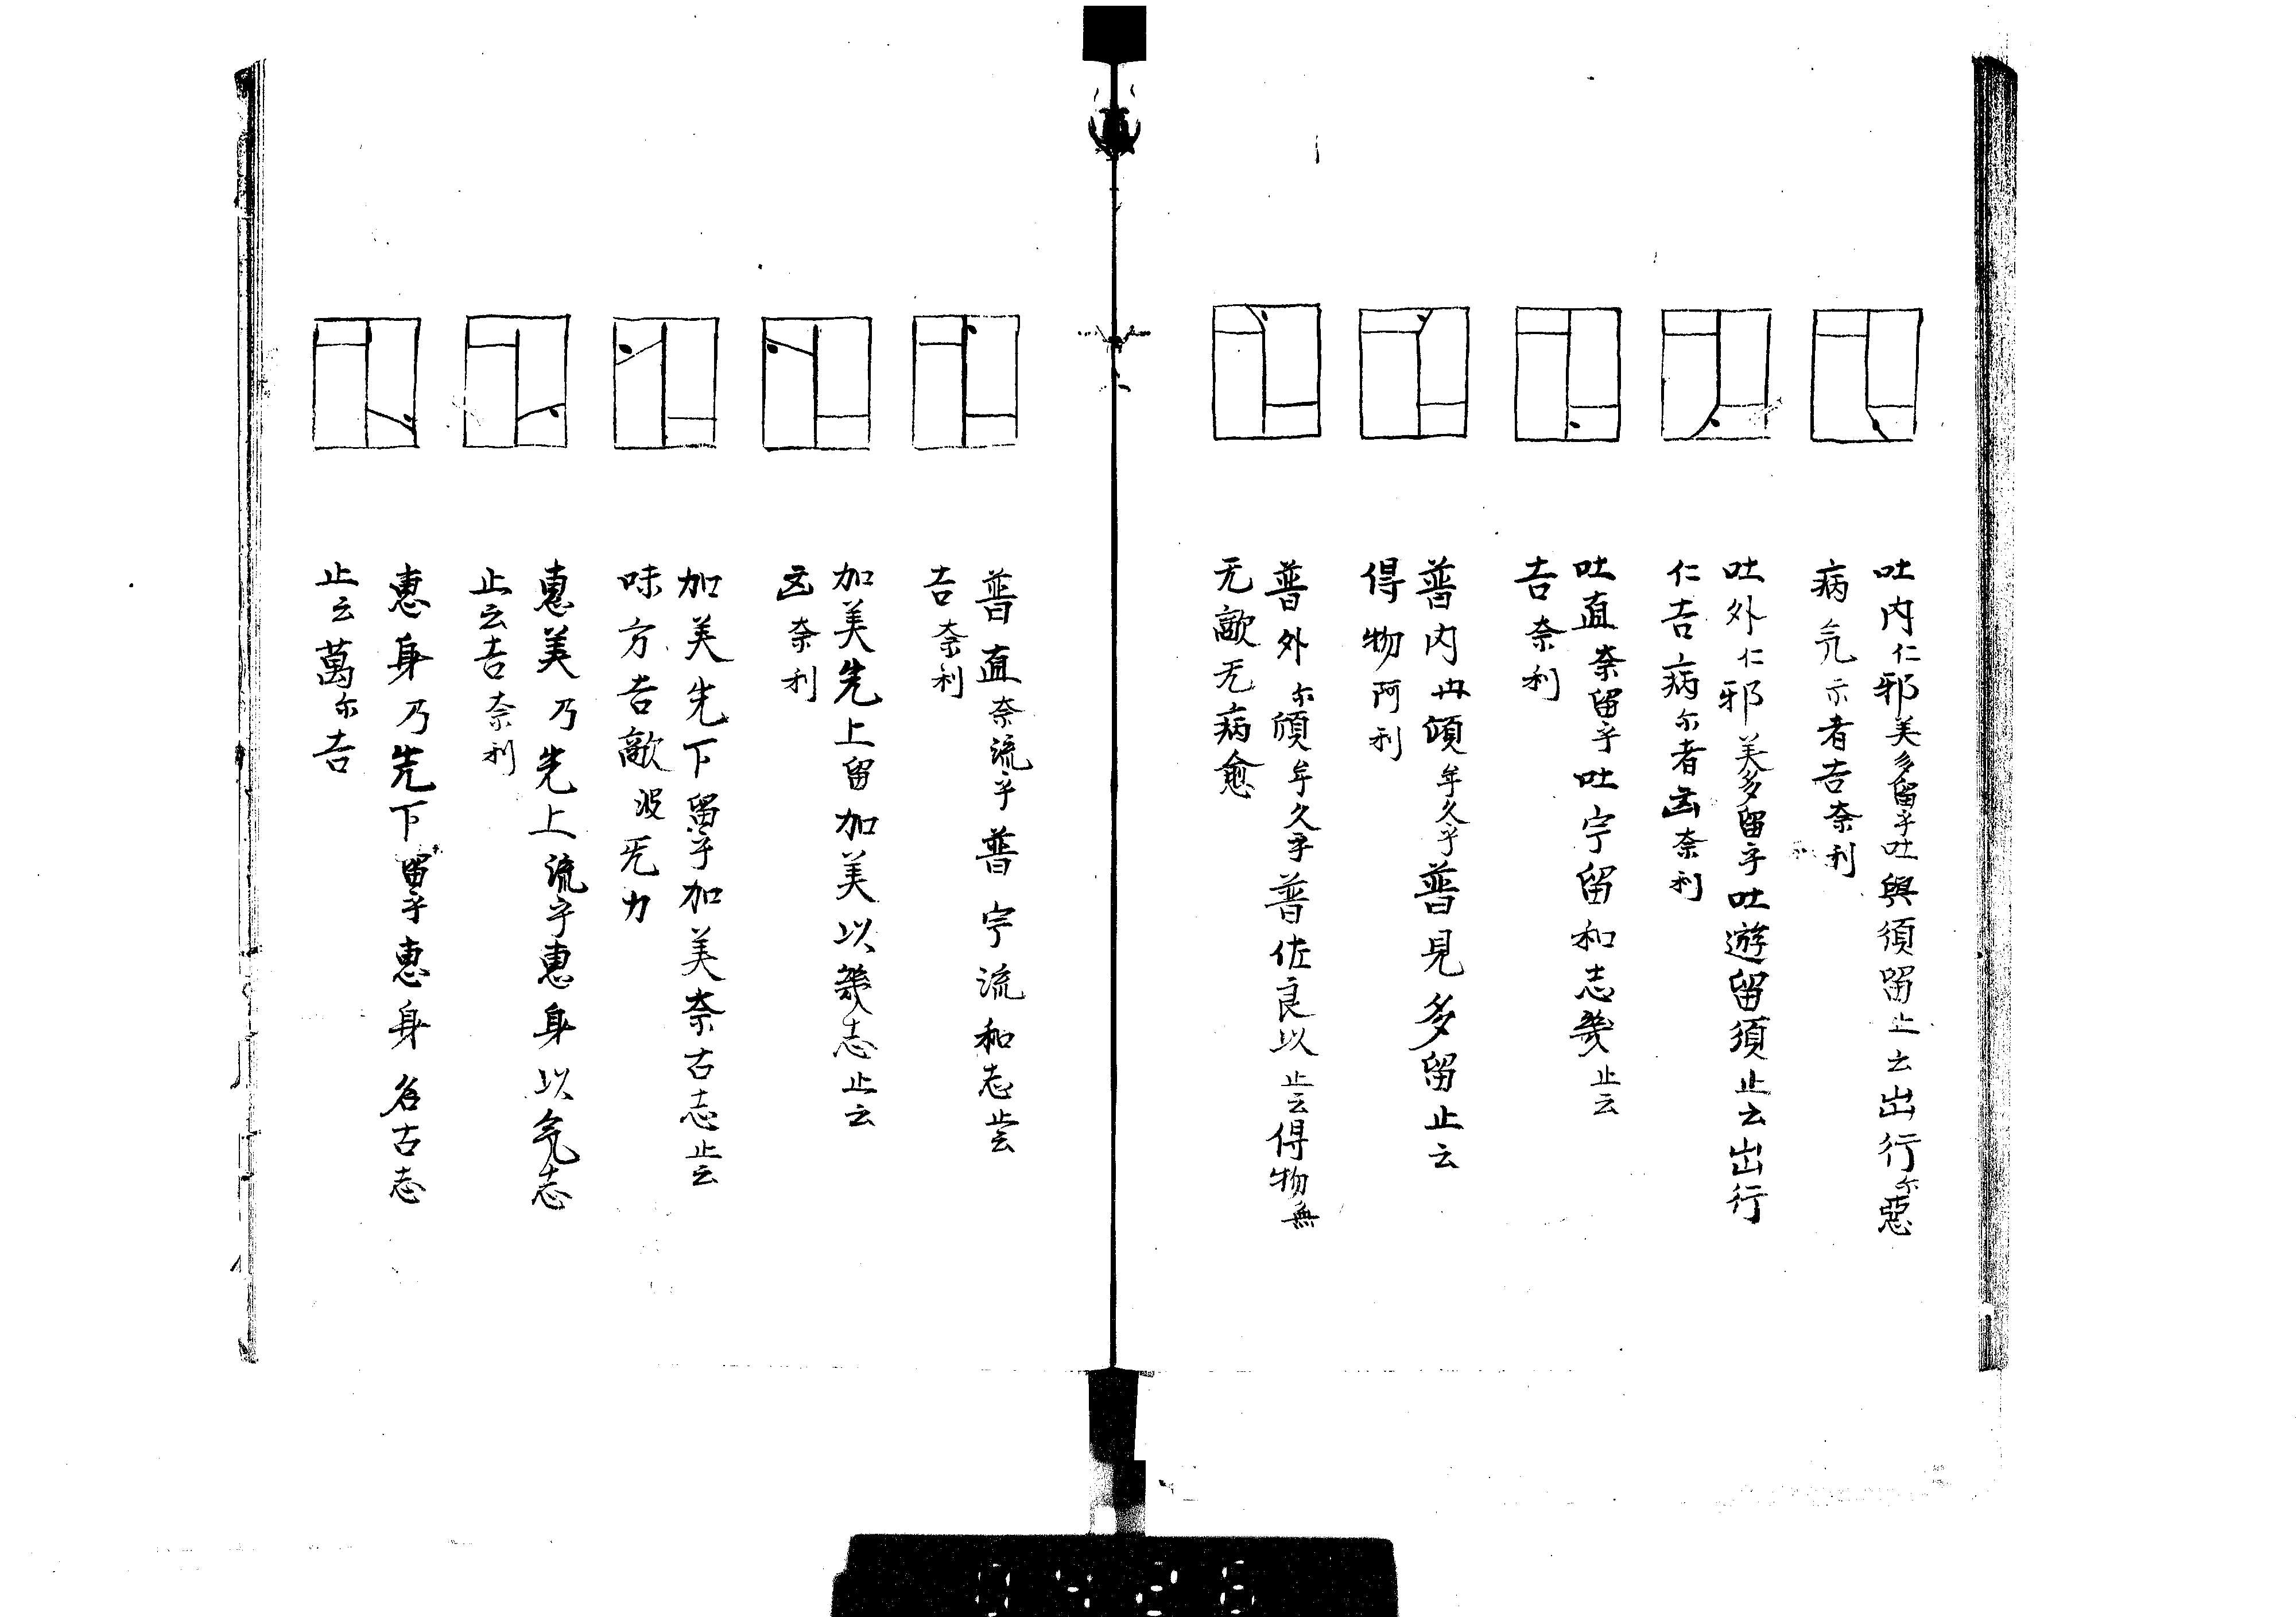 吐内仁邪美多留乎吐與須留止云出行尓惡
病気尓者吉奈利
吐外仁邪美多留乎吐遊留須止云出行
仁吉病尓者凶奈利
吐直奈留乎吐宁留和志幾止云
吉奈利
普内尓傾牟久乎普見多留止云
得物阿利
普外尓傾牟久乎普佐良以止云得物無
无敵无病愈
普直奈流乎普宁流和志止云
吉奈利
加美先上留加美以幾志止云
凶奈利
加美先下留乎加美奈古志止云
味方吉敵波无力
惠美乃先上流乎惠身以気志
止云吉奈利
惠身乃先下留乎惠身名古志
止云萬尓吉